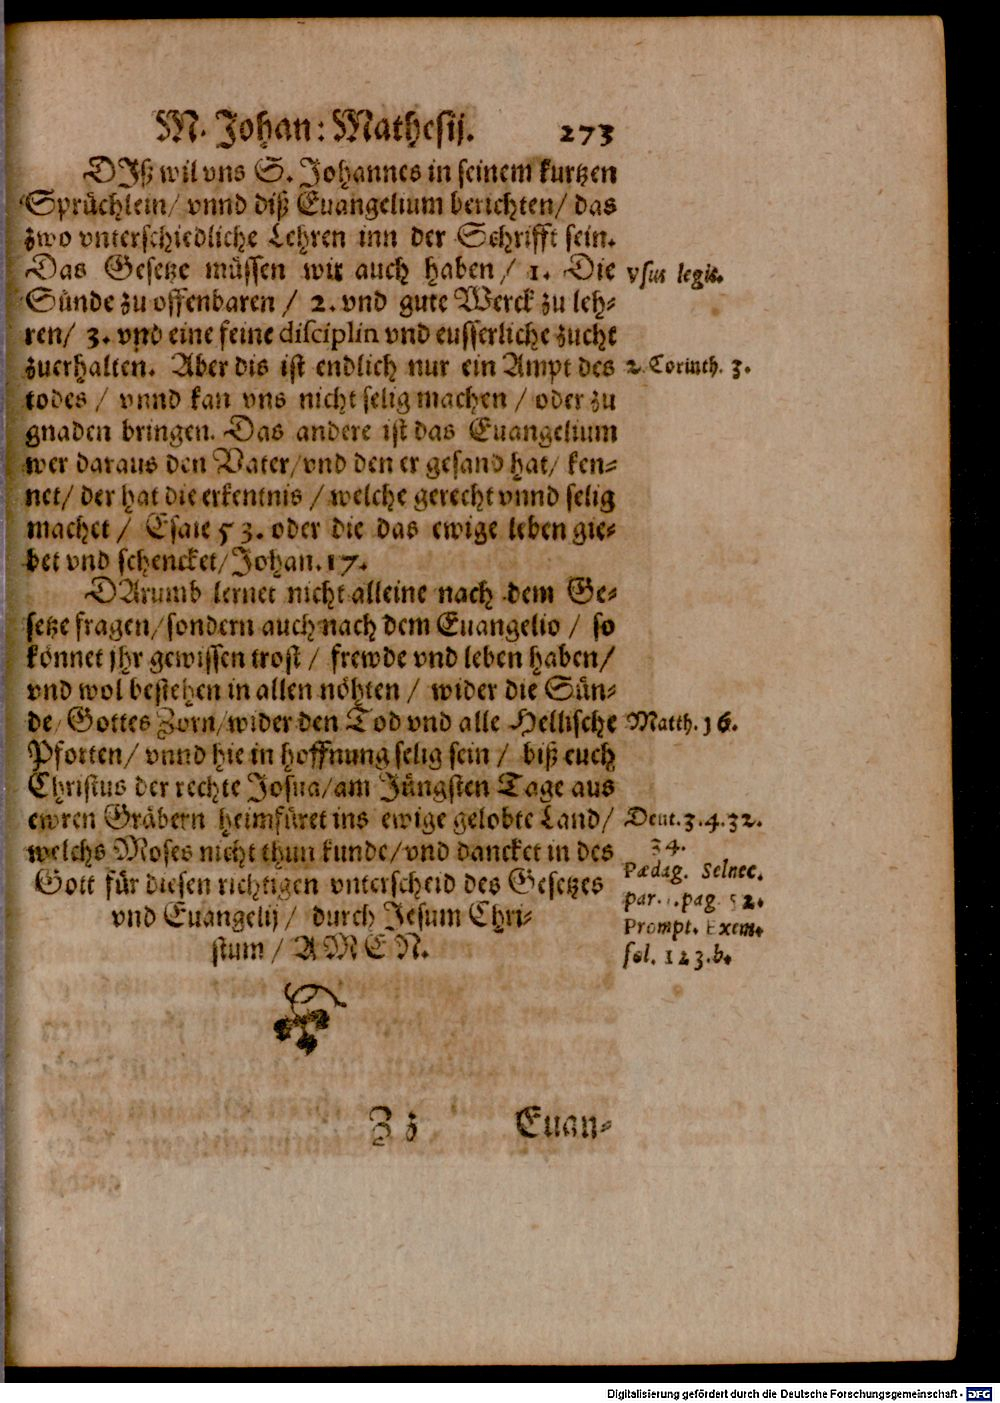 M. Johan: Mathesij. 273
DJß wil vns S. Johannes in seinem kurtzen
Sprüchlein/ vnnd diß Euangelium berichten/ das
zwo vnterschiedliche Lehren inn der Schrifft sein.
Das Gesetze müssen wir auch haben / 1. Die
vsus legis.
Sünde zu offenbaren / 2. vnd gute Werck zu leh-
ren/ 3. vnd eine feine disciplin vnd eusserliche zucht
zuerhalten. Aber dis ist endlich nur ein Ampt des
2. Corinth. 3.
todes / vnnd kan vns nicht selig machen / oder zu
gnaden bringen. Das andere ist das Euangelium
wer daraus den Vater/vnd den er gesand hat/ ken-
net/ der hat die erkentnis / welche gerecht vnnd selig
machet / Esaie 53. oder die das ewige leben gie-
bet vnd schencket/Johan.17.
DArumb lernet nicht alleine nach dem Ge-
setze fragen/sondern auch nach dem Euangelio / so
könnet jhr gewissen trost / frewde vnd leben haben/
vnd wol bestehen in allen nöhten / wider die Sün-
de/Gottes Zorn/wider den Tod vnd alle Hellische
Matth.16.
Pforten/ vnnd hie in hoffnung selig sein / biß euch
Christus der rechte Josua/am Jüngsten Tage aus
ewren Gräbern heimfüret ins ewige gelobte Land/
Deut.3.4.32.
34.
welchs Moses nicht thun kunde/vnd dancket in des
Gott für diesen richtigen vnterscheid des Gesetzes
Pædag. Selnec.
par. pag. 52.
vnd Euangelij/ durch Jesum Chri-
Prompt. Exem.
stum / AMEN.
fol. 123.b.
Zz Euan-
Digitalisierung gefördert durch die Deutsche Forschungsgemeinschaft - DFG